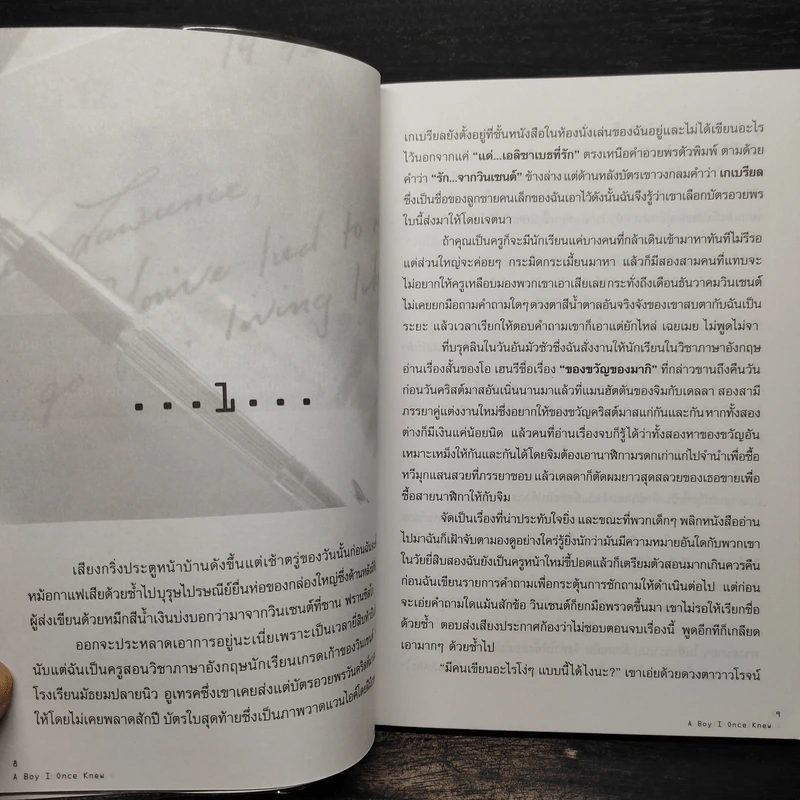 Lawrence,
You've lied to
living
...1...
เสียงกริ่งประตูหน้าบ้านดังขึ้นแต่เช้าตรู่ของวันนั้นก่อนฉัน
หม้อกาแฟเสียด้วยซ้ำไป บุรุษไปรษณีย์ยื่นห่อของกล่องใหญ่ซึ่งด้านหลัง
ผู้ส่งเขียนด้วยหมึกสีน้ำเงินบ่งบอกว่ามาจากวินเซนต์ที่ซาน ฟรานซิสโก
ออกจะประหลาดเอาการอยู่นะเนี่ยเพราะเป็นเวลายี่สิบ
นับแต่ฉันเป็นครูสอนวิชาภาษาอังกฤษนักเรียนเกรดเก้าของวินเซนต์
โรงเรียนมัธยมปลายนิว อูเทรคซึ่งเขาเคยส่งแต่บัตรอวยพรวันคริสต์มาส
ให้โดยไม่เคยพลาดสักปี บัตรใบสุดท้ายซึ่งเป็นภาพวาดแวนไอค์โดย
8
A Boy I Once Knew
เกเบรียลยังตั้งอยู่ที่ชั้นหนังสือในห้องนั่งเล่นของฉันอยู่และไม่ได้เขียนอะไร
ไว้นอกจากแค่ “แด่...เอลิซาเบธที่รัก” ตรงเหนือคำอวยพรตัวพิมพ์ ตามด้วย
คำว่า “รัก...จากวินเซนต์” ข้างล่าง แต่ด้านหลังบัตรเขาวงกลมคำว่า เกเบรียล
ซึ่งเป็นชื่อของลูกชายคนเล็กของฉันเอาไว้ดังนั้นฉันจึงรู้ว่าเขาเลือกบัตรอวยพร
ใบนี้ส่งมาให้โดยเจตนา
ถ้าคุณเป็นครูก็จะมีนักเรียนแค่บางคนที่กล้าเดินเข้ามาหาทันทีไม่รีรอ
แต่ส่วนใหญ่จะค่อยๆ กระมิดกระเมี้ยนมาหา แล้วก็มีสองสามคนที่แทบจะ
ไม่อยากให้ครูเหลือบมองพวกเขาเอาเสียเลย กระทั่งถึงเดือนธันวาคมวินเซนต์
ไม่เคยยกมือถามคำถามใดๆ ดวงตาสีน้ำตาลอันจริงจังของเขาสบตากับฉันเป็น
ระยะ แล้วเวลาเรียกให้ตอบคำถามเขาก็เอาแต่ยักไหล่ เฉยเมย ไม่พูดไม่จา
ที่บรุคลินในวันอันมัวซัวซึ่งฉันสั่งงานให้นักเรียนในวิชาภาษาอังกฤษ
อ่านเรื่องสั้นของโอ เฮนรีชื่อเรื่อง “ของขวัญของมากิ” ที่กล่าวขานถึงคืนวัน
ก่อนวันคริสต์มาสอันเนิ่นนานมาแล้วที่แมนฮัตตันของจิมกับเดลลา สองสามี
ภรรยาคู่แต่งงานใหม่ซึ่งอยากให้ของขวัญคริสต์มาสแก่กันและกัน หากทั้งสอง
ต่างก็มีเงินแค่น้อยนิด แล้วคนที่อ่านเรื่องจบก็รู้ได้ว่าทั้งสองหาของขวัญอัน
เหมาะเหม็งให้กันและกันได้โดยจิมต้องเอานาฬิกามรดกเก่าแก่ไปจำนำเพื่อซื้อ
หวีมุกแสนสวยที่ภรรยาชอบ แล้วเดลดาก็ตัดผมยาวสุดสลวยของเธอขายเพื่อ
ซื้อสายนาฬิกาให้กับจิม
จัดเป็นเรื่องที่น่าประทับใจยิ่ง และขณะที่พวกเด็กๆ พลิกหนังสืออ่าน
ไปมาฉันก็เฝ้าจับตามองดูอย่างใคร่รู้ยิ่งนักว่ามันมีความหมายอันใดกับพวกเขา
ในวัยยี่สิบสองฉันยังเป็นครูหน้าใหม่ซี้ปอดแล้วก็เตรียมตัวสอนมากเกินควรคืน
ก่อนฉันเขียนรายการคำถามเพื่อกระตุ้นการซักถามให้ดำเนินต่อไป แต่ก่อน
จะเอ่ยคำถามใดแม้นสักข้อ วินเซนต์ก็ยกมือพรวดขึ้นมา เขาไม่รอให้เรียกชื่อ
ด้วยซ้ำ ตอบส่งเสียงประกาศก้องว่าไม่ชอบตอนจบเรื่องนี้ พูดอีกทีก็เกลียด
เอามากๆ ด้วยซ้ำไป
“มีคนเขียนอะไรโง่ๆ แบบนี้ได้ไงนะ?” เขาเอ่ยด้วยดวงตาวาวโรจน์
๙
A Boy I Once Knew